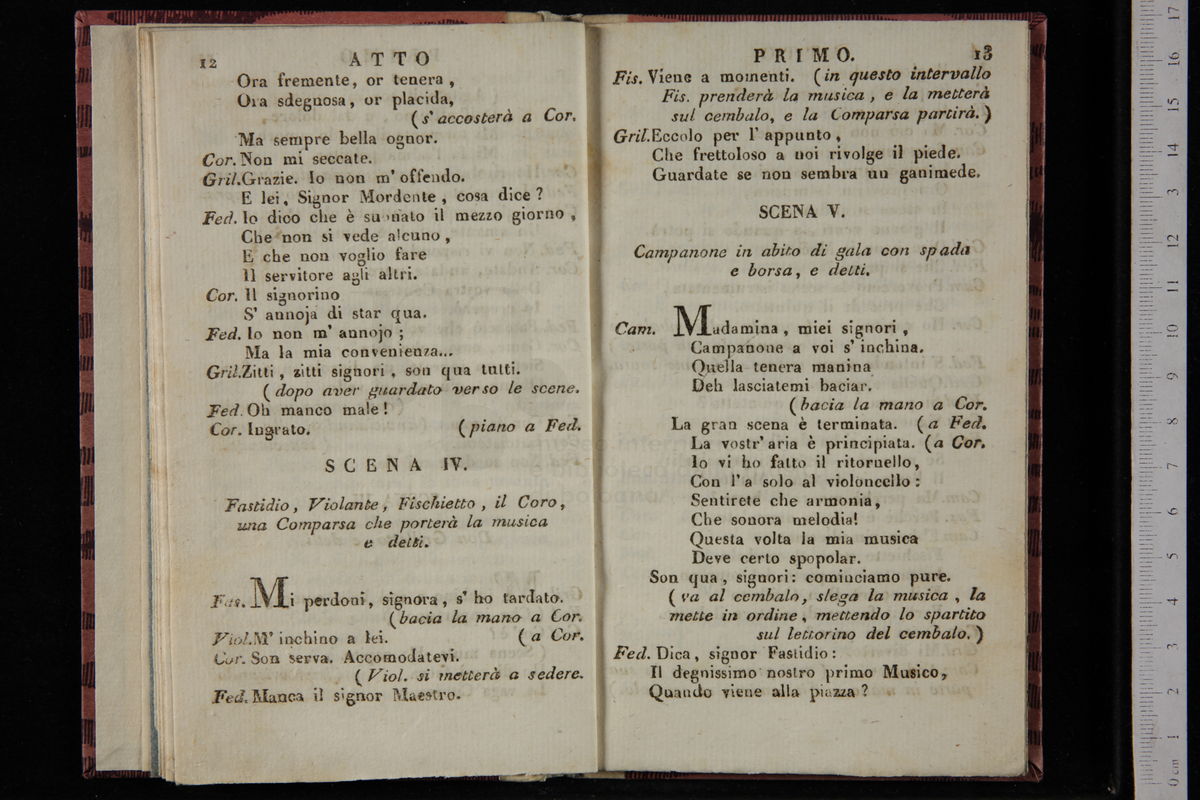 12 ATTO
Ora fremente, or tenera,
Ora sdegnosa, or placida,
(s' accosterà a Cor.
Ma sempre bella ognor.
Cor. Non mi seccate.
Gril. Grazie. Io non m' offendo.
E lei, Signor Mordente, cosa dice?
Fed. Io dico che è suonato il mezzo giorno,
Che non si vede alcuno,
E che non voglio fare
Il servitore agli altri.
Cor. Il signorino
S' annoja di star qua.
Fed. Io non m' annojo;
Ma la mia convenienza...
Gril. Zitti, zitti signori, son qua tutti.
(dopo aver guardato verso le scene.
Fed. Oh manco male!
Cor. Ingrato. (piano a Fed.
SCENA IV.
Fastidio, Violante, Fischietto, il Coro,
una Comparsa che porterà la musica
e detti.
Fas. Mi perdoni, signora, s' ho tardato.
(bacia la mano a Cor.
Viol. M' inchino a lei. (a Cor.
Cor. Son serva. Accomodatevi.
(Viol. si metterà a sedere.
Fed. Manca il signor Maestro.
PRIMO. 13
Fis. Viene a momenti. (in questo intervallo
Fis. prenderà la musica, e la metterà
sul cembalo, e la Comparsa partirà.)
Gril. Eccolo per l' appunto,
Che frettoloso a noi rivolge il piede.
Guardate se non sembra un ganimede.
SCENA V.
Campanone in abito di gala con spada
e borsa, e detti.
Cam. Madamina, miei signori,
Campanone a voi s' inchina.
Quella tenera manina
Deh lasciatemi baciar.
(bacia la mano a Cor.
La gran scena è terminata. (a Fed.
La vostr' aria è principiata. (a Cor.
Io vi ho fatto il ritornello,
Con l' a solo al violoncello:
Sentirete che armonia,
Che sonora melodia!
Questa volta la mia musica
Deve certo spopolar.
Son qua, signori: cominciamo pure.
(va al cembalo, slega la musica, la
mette in ordine, mettendo lo spartito
sul lettorino del cembalo.)
Fed. Dica, signor Fastidio:
Il degnissimo nostro primo Musico,
Quando viene alla piazza?